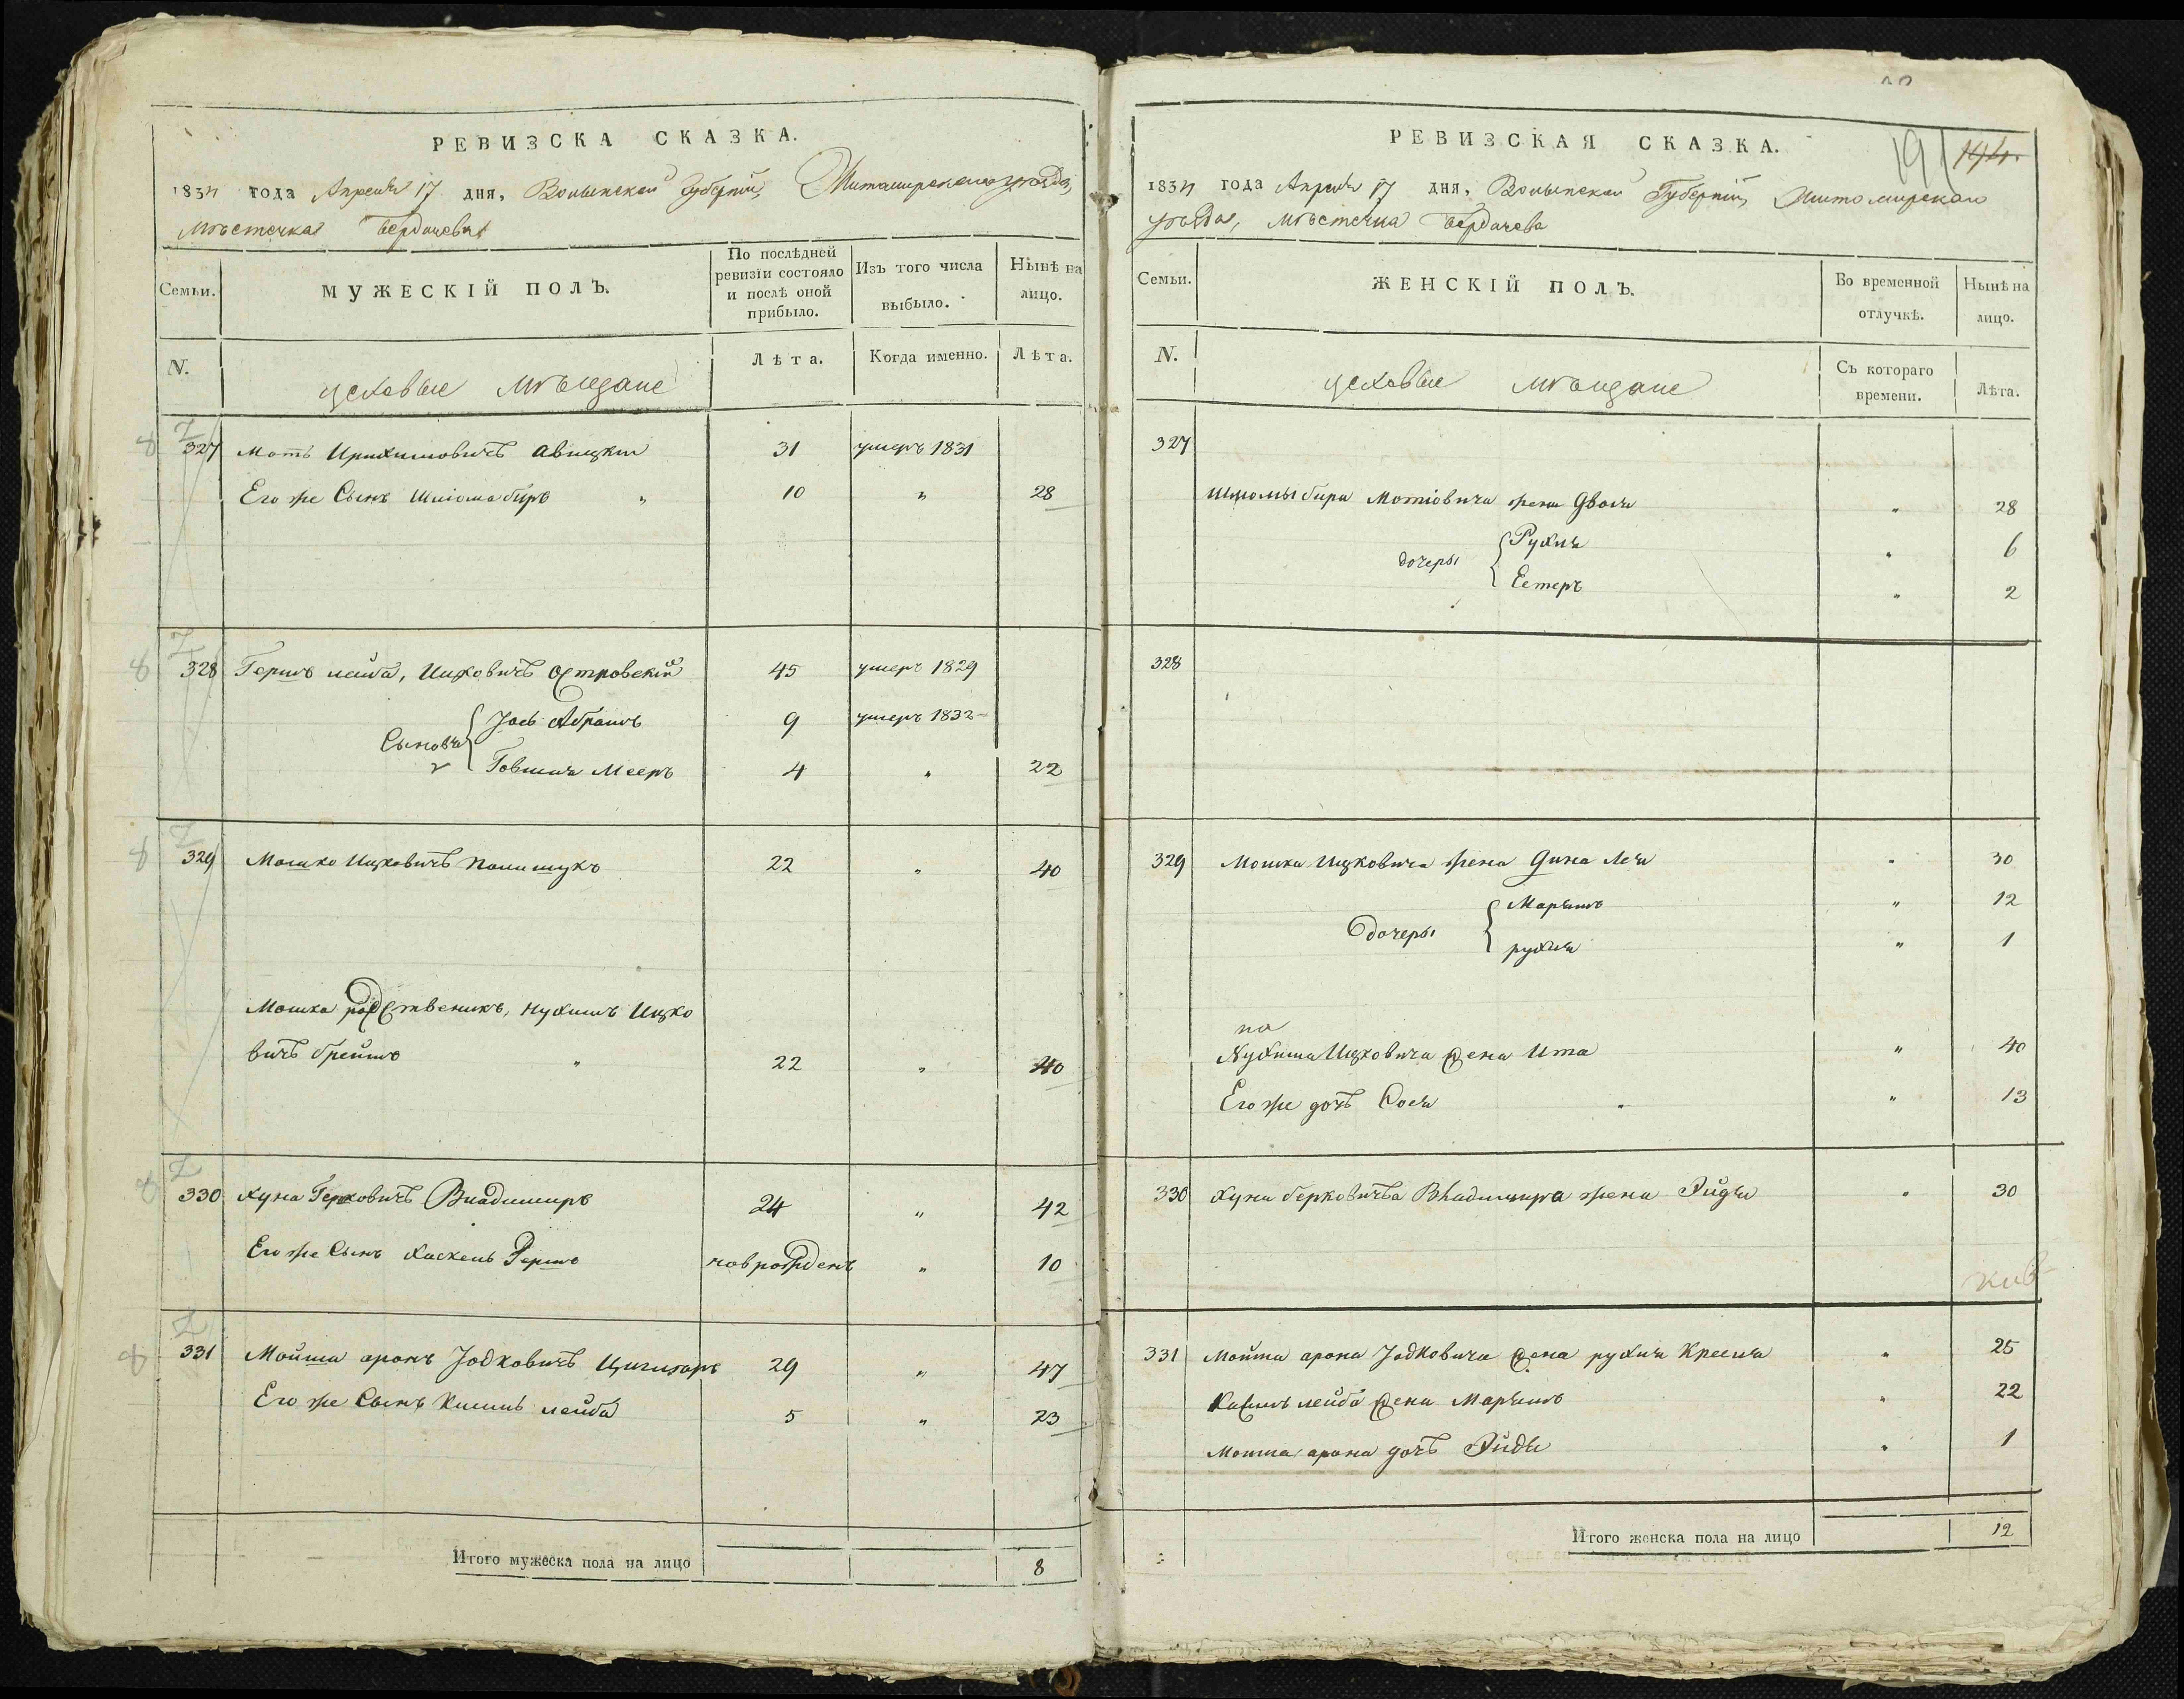 РЕВИЗСКА СКАЗКА.
1834 года Апреля 17 дня, Волынской Губернии, Житомирского уезда,
Мѣстечка Бердичева
Семьи.
МУЖЕСКІЙ ПОЛЪ.
По послѣдней ревизіи состояло и послѣ оной прибыло.
Изъ того числа выбыло.
Нынѣ на лицо.
N.
цеховые мѣщане
Лѣта.
Когда именно.
Лѣта.
327 Моть Авицкій 31 умеръ 1831
Его же Сынъ Шліома беръ " 10 " 28
328 Гершъ лейба, Ицковичъ Островскій 45 умеръ 1829
Сыновья { Іось Абрамъ 9 умеръ 1832
Говшия Мееръ 4 " 22
329 Мошко Ицковичъ Полищукъ 22 " 40
Мошка родственикъ, Нухимъ Ицко
вичъ " 22 " 40
330 Хуна Берковичъ Владимиръ 24 " 42
Его же Сынъ Хаскель Гершъ новорожденъ " 10
331 Мойша аронъ Іодковичъ 29 " 47
Его же Сынъ лейба 5 " 23
Итого мужеска пола на лицо 8
РЕВИЗСКАЯ СКАЗКА.
191 194.
1834 года Апреля 17 дня, Волынской Губерніи, Житомирскаго
уѣзда, Мѣстечка Бердичева
Семьи.
ЖЕНСКІЙ ПОЛЪ.
Во временной отлучкѣ.
Нынѣ на лицо.
N.
цеховые мѣщане
Съ котораго времени.
Лѣта.
327
Шліомы бера Мотіовича жена Двося " 28
дочеры { Рухля " 6
Естеръ " 2
328
329 Мошка Ицковича жена Дина Лея " 30
дочеры { Марьямъ " 12
рухля " 1
Нухима Ицковича жена Ита " 40
Его же дочь Сося " " 13
330 Хуны берковича Владимира жена Эйдя " 30
331 Мойша арона Іодковича жена рухля Крейна " 25
лейба жена Марьямъ " 22
Мойша арона дочь Эйдя " 1
Итого женска пола на лицо 12